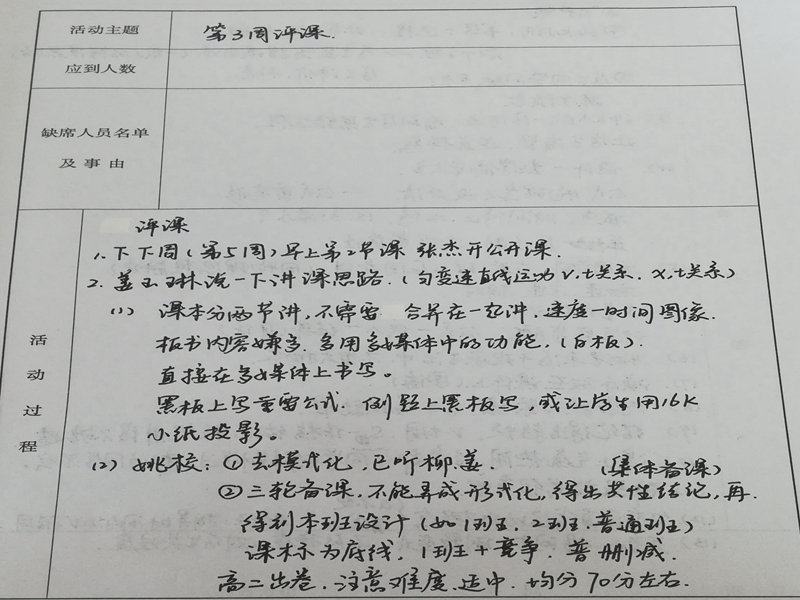 活动主题
第3周评课.
应到人数
缺席人员名单
及事由
活动过程
评课
1. 下下周(第5周)早上第2节课 张杰开公开课.
2. 姜玉琳说一下讲课思路.(匀变速直线运动 v,t关系. x,t关系)
(1) 课本分两节讲,不需要 合并在一起讲,速度—时间图像.
板书内容嫌多,多用多媒体中的功能,(白板).
直接在多媒体上书写。
黑板上写重要公式. 例题上黑板写,或让学生用16K
小纸投影。
(2) 姚校: ①去模式化,已听柳.姜 (集体备课)
②三轮备课,不能弄成形式化,得出共性结论,再.
得到本班设计(如1班,2班,普通班)
课标为底线, 1班+竞争. 普删减.
高二出卷, 注意难度.适中. 均分70分左右.